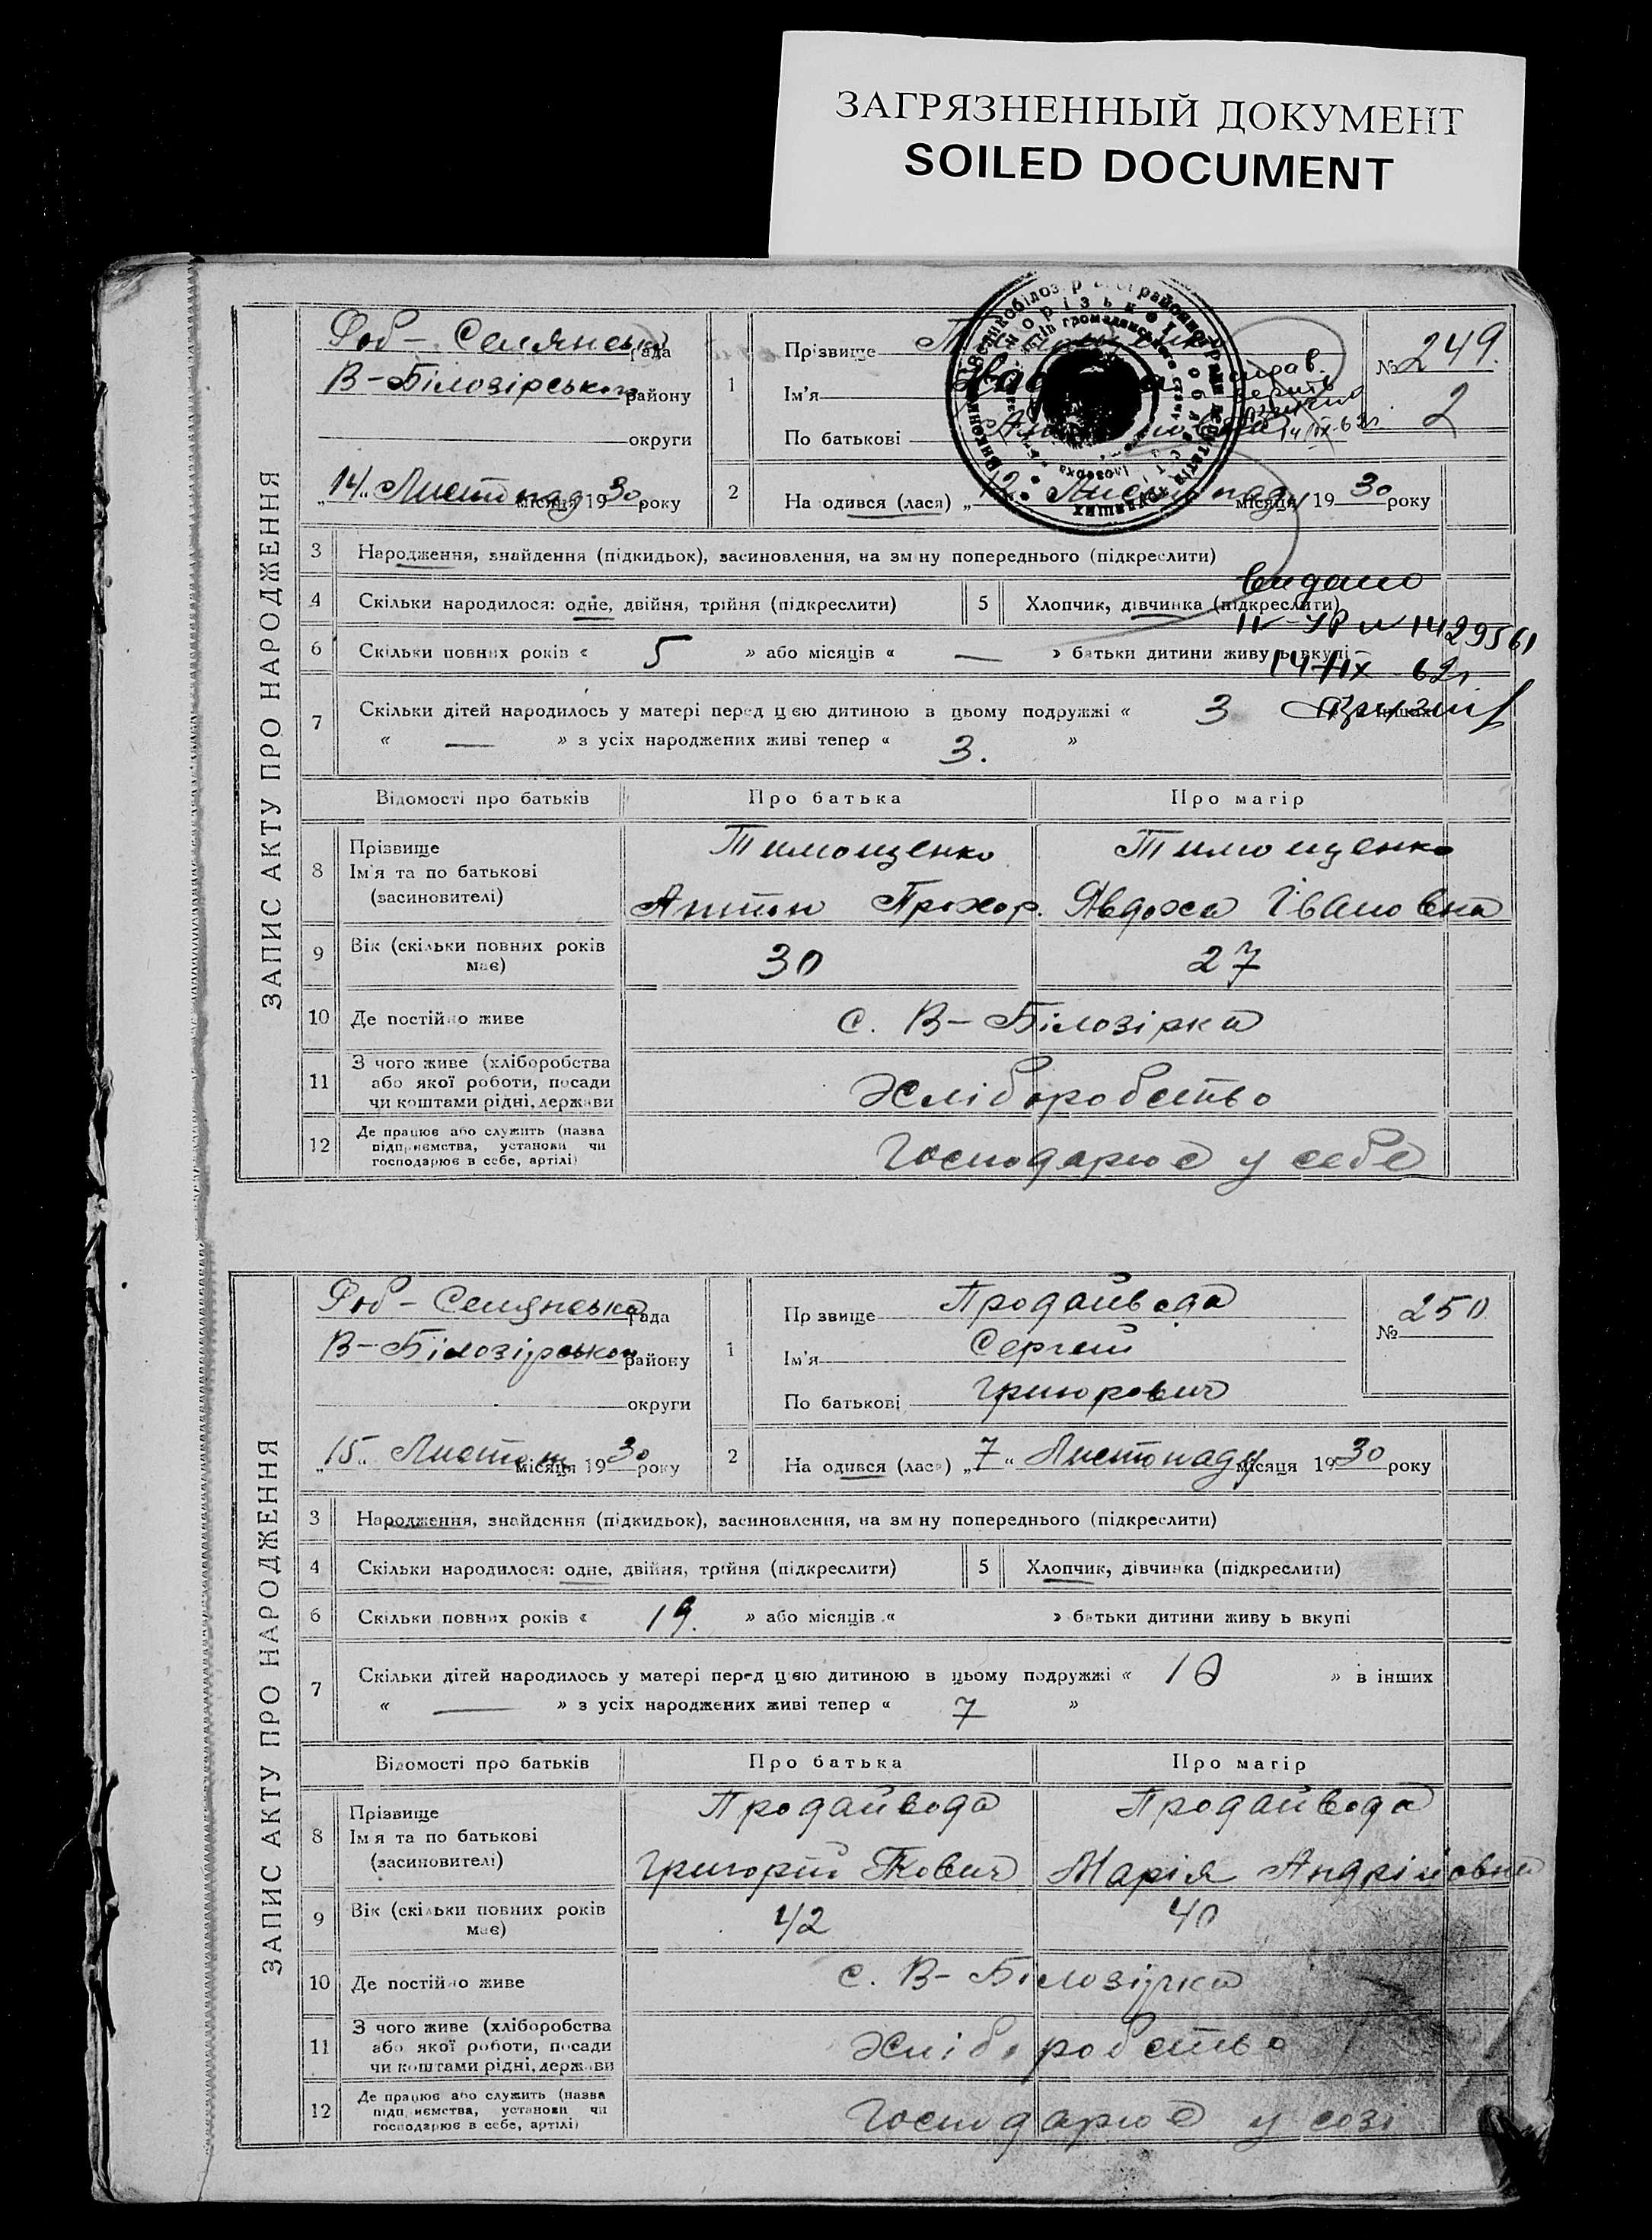 ЗАГРЯЗНЕННЫЙ ДОКУМЕНТ
SOILED DOCUMENT
ЗАПИС АКТУ ПРО НАРОДЖЕННЯ
Роб – Селянська рада
В – Білозірського району
округи
„14“ Листопаду місяця 1930 року
1
Прізвище
Ім'я
По батькові
№ 249.
2
14/IX-62г.
2
На одився (лася) „ Листопаду місяця 1930 року
3 Народження, знайдення (підкидьок), засиновлення, на зм ну попереднього (підкреслити)
4 Скільки народилося: одне, двійня, трійня (підкреслити) 5 Хлопчик, дівчинка (підкреслити)
Видано
IV-УР № 1429561
14-IX-62г
6 Скільки повних років « 5 » або місяців « — » батьки дитини живу ь вкупі
7 Скільки дітей народилось у матері перед цією дитиною в цьому подружжі « 3
« — » з усіх народжених живі тепер « 3. »
Відомості про батьків Про батька Про матір
8 Прізвище
Ім'я та по батькові
(засиновителі)
Тимощенко Тимощенко
Антон Прохор. Явдоха Івановна
9 Вік (скільки повних років має) 30 27
10 Де постійно живе с. В – Білозірка
11 З чого живе (хліборобства
або якої роботи, посади
чи коштами рідні, держави
Хліборобство
12 Де працює або служить (назва
підприємства, установи чи
господарює в себе, артілі)
Господарює у себе
ЗАПИС АКТУ ПРО НАРОДЖЕННЯ
Роб – Селянська рада
В – Білозірського району
округи
„15“ Листоп. місяця 1930 року
1
Пр звище Продайвода
Ім'я Сергей
По батькові Григорович
№ 250
2
На одився (лася) „7“ Листопаду місяця 1930 року
3 Народження, знайдення (підкидьок), засиновлення, на зм ну попереднього (підкреслити)
4 Скільки народилося: одне, двійня, трійня (підкреслити) 5 Хлопчик, дівчинка (підкреслити)
6 Скільки повних років « 19. » або місяців « » батьки дитини живу ь вкупі
7 Скільки дітей народилось у матері перед цією дитиною в цьому подружжі « 10 » в інших
« — » з усіх народжених живі тепер « 7 »
Відомості про батьків Про батька Про матір
8 Прізвище
Ім'я та по батькові
(засиновителі)
Продайвода Продайвода
Григорій Марія Андріивна
9 Вік (скільки повних років має) 42 40
10 Де постійно живе с. В – Білозірка
11 З чого живе (хліборобства
або якої роботи, посади
чи коштами рідні, держави
Хліборобство
12 Де працює або служить (назва
підп иємства, установи чи
господарює в себе, артілі)
Господарює у